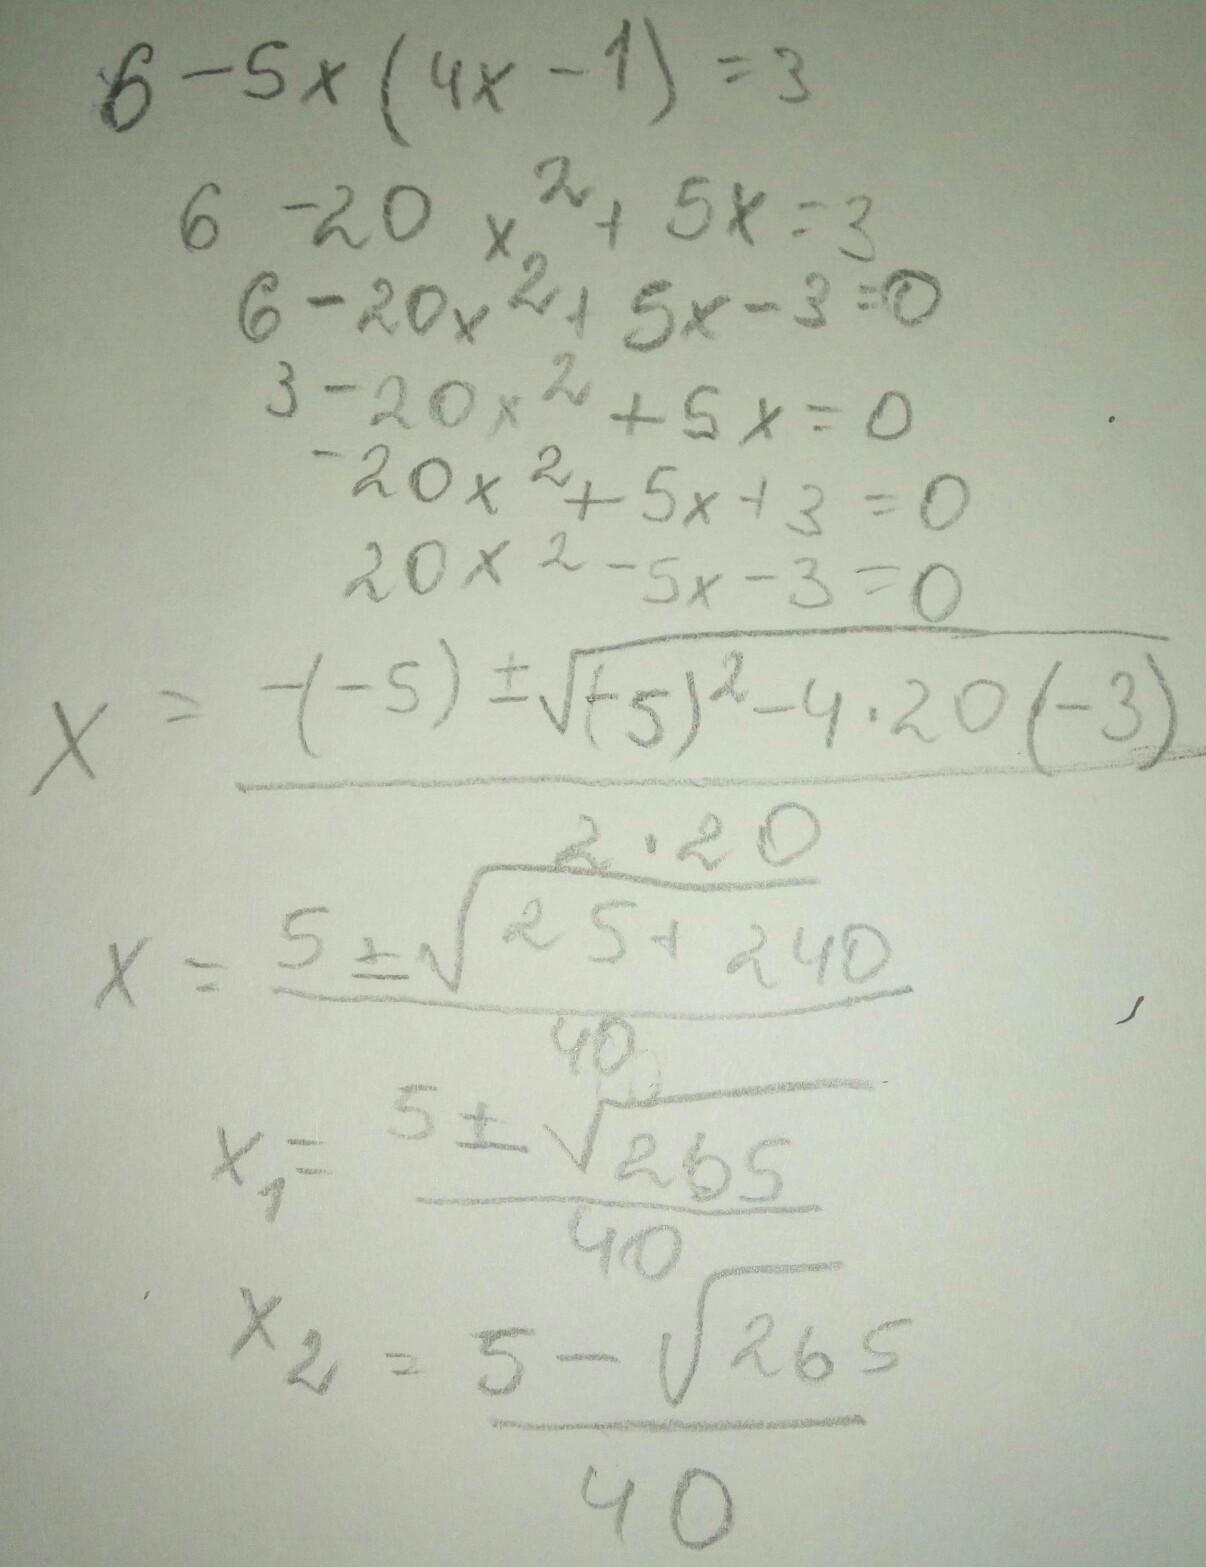 6 - 5x (4x - 1) = 3
6 - 20 x² + 5x = 3
6 - 20x² + 5x - 3 = 0
3 - 20x² + 5x = 0
-20x² + 5x + 3 = 0
20x² - 5x - 3 = 0
x = (-(-5) ± √((-5)² - 4·20(-3))) / (2·20)
x = (5 ± √(25 + 240)) / 40
x₁ = (5 ± √265) / 40
x₂ = (5 - √265) / 40